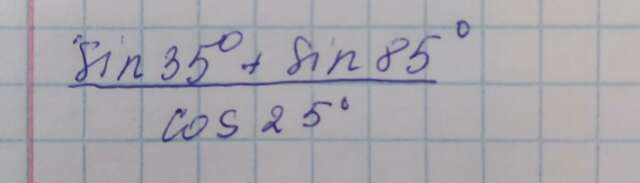 sin 35° + sin 85°
cos 25°